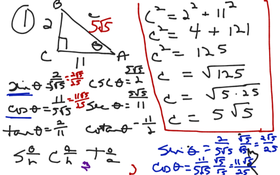 ①
B
2
c
5√5
θ
C
11
A
c² = 2² + 11²
c² = 4 + 121
c² = 125
c = √125
c = √5·25
c = 5√5
sinθ = 2/5√5 = 2√5/25 cscθ = 5√5/2
cosθ = 11/5√5 = 11√5/25 secθ = 5√5/11
tanθ = 2/11 cotanθ = 11/2
S o/h C a/h T o/a
sinθ = 2/5√5 · √5/√5 = 2√5/25
cosθ = 11/5√5 · √5/√5 = 11√5/25